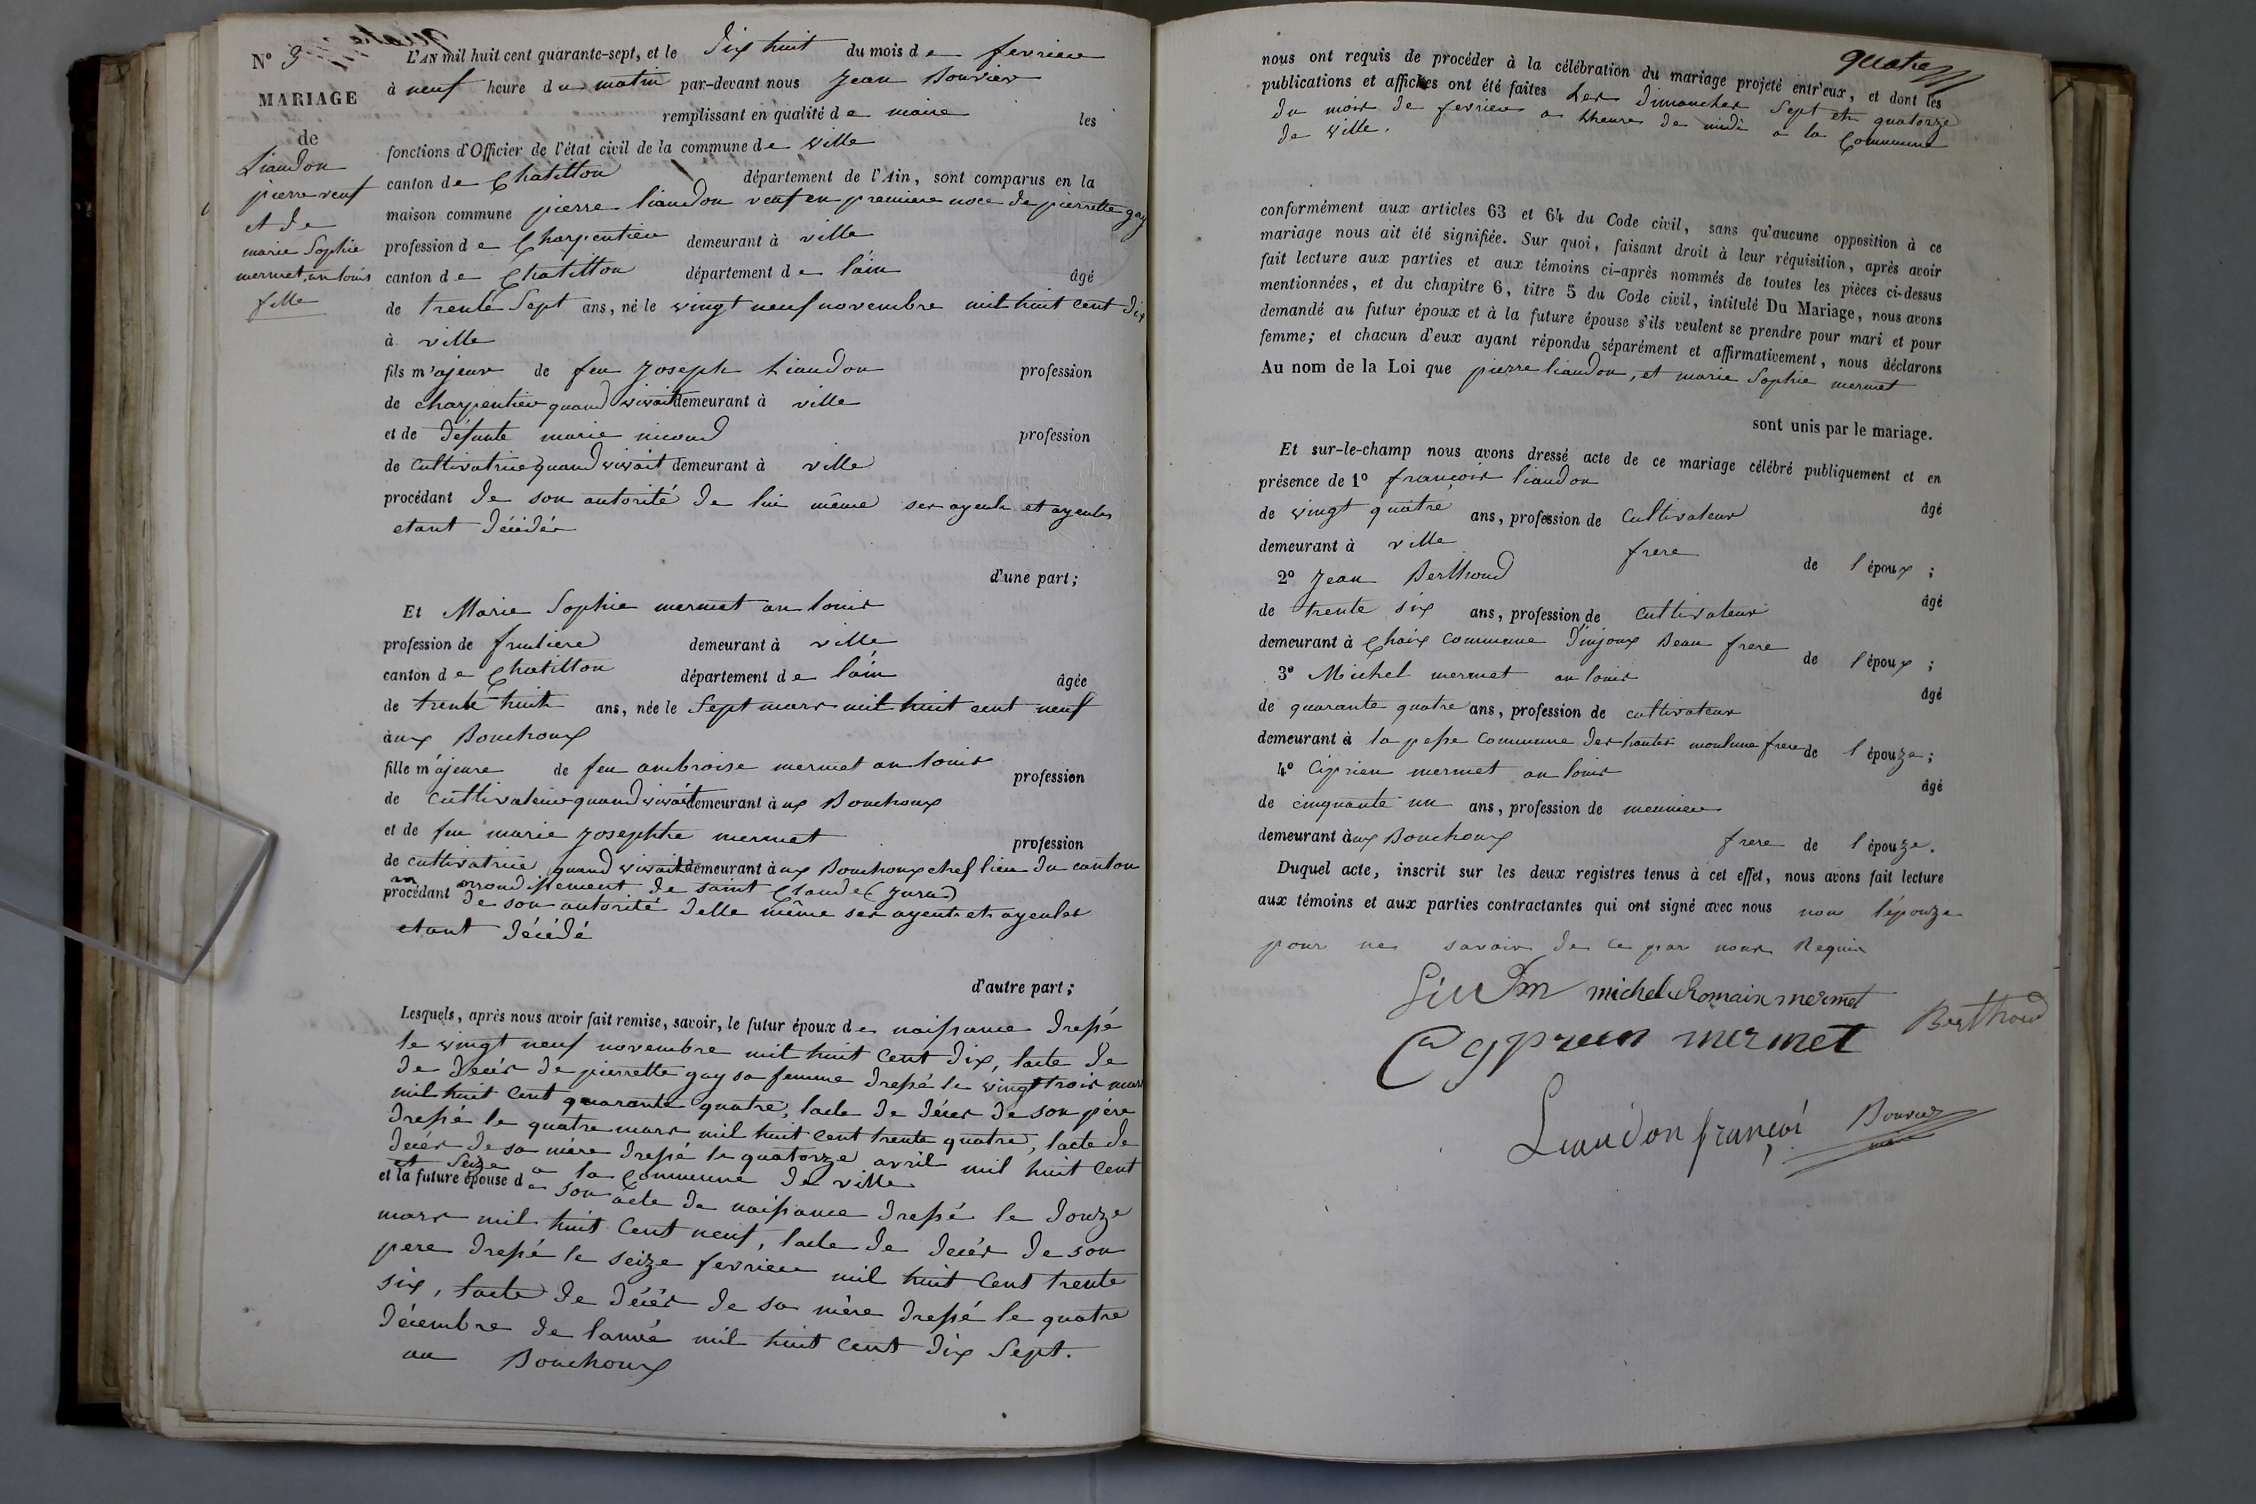 N° 3
MARIAGE
de
Liaudon
pierre veuf
et de
marie Sophie
mermet au louis
fille
L'AN mil huit cent quarante-sept, et le dix huit du mois de fevrier
à neuf heure du matin par-devant nous Jean Bouvier
remplissant en qualité de maire les
fonctions d'Officier de l'état civil de la commune de ville
canton de Chatillon département de l'Ain, sont comparus en la
maison commune pierre liaudon veuf en premiere noce de pierrette gay
profession de Charpentier demeurant à ville
canton de Chatillon département de lain âgé
de trente Sept ans, né le vingt neuf novembre mil huit cent dix
à ville
fils majeur de feu Joseph Liaudon profession
de charpentier quand vivait demeurant à ville
et de défunte marie nicoud profession
de cultivatrice quand vivait demeurant à ville
procédant de son autorité de lui même ses ayeuls et ayeules
etant décédés
d'une part;
Et Marie Sophie mermet au louis
profession de fruitiere demeurant à ville
canton de Chatillon département de lain âgée
de trente huit ans, née le Sept mars mil huit cent neuf
aux Bouchoux
fille majeure de feu ambroise mermet au louis profession
de cultivateur quand vivait demeurant aux Bouchoux
et de feu marie Josephte mermet profession
de cultivatrice quand vivait demeurant aux Bouchoux chef lieu du canton
arrondissement de saint Claude (Jura)
procédant de son autorité delle même ses ayeuls et ayeules
etant décédé
d'autre part;
Lesquels, après nous avoir fait remise, savoir, le futur époux de naissance dressé
le vingt neuf novembre mil huit cent dix, lacte de
de decés de pierrette gay sa femme dressé le vingt trois mars
mil huit cent quarante quatre, lacte de décés de son pére
dressé le quatre mars mil huit cent trente quatre, lacte de
decés de sa mère dressé le quatorze avril mil huit cent
et seize a la Commune de ville
et la future épouse de son acte de naissance dressé le douze
mars mil huit cent neuf, lacte de decés de son
pere dressé le seize fevrier mil huit cent trente
six, lacte de décés de sa mère dressé le quatre
décembre de lannée mil huit cent dix Sept.
au Bouchoux
quatre
nous ont requis de procéder à la célébration du mariage projeté entr'eux, et dont les
publications et affiches ont été faites Les dimanches Sept et quatorze
du mois de fevrier a Lheure de midi a la Commune
de ville.
conformément aux articles 63 et 64 du Code civil, sans qu'aucune opposition à ce
mariage nous ait été signifiée. Sur quoi, faisant droit à leur réquisition, après avoir
fait lecture aux parties et aux témoins ci-après nommés de toutes les pièces ci-dessus
mentionnées, et du chapitre 6, titre 5 du Code civil, intitulé Du Mariage, nous avons
demandé au futur époux et à la future épouse s'ils veulent se prendre pour mari et pour
femme; et chacun d'eux ayant répondu séparément et affirmativement, nous déclarons
Au nom de la Loi que pierre liaudon, et marie Sophie mermet
sont unis par le mariage.
Et sur-le-champ nous avons dressé acte de ce mariage célébré publiquement et en
présence de 1° françois liaudon âgé
de vingt quatre ans, profession de Cultivateur
demeurant à ville frere de l'époux;
2° Jean Berthoud âgé
de trente six ans, profession de cultivateur
demeurant à Chaix Commune d'injoux Beau frere de l'époux;
3° Michel mermet au louis âgé
de quarante quatre ans, profession de cultivateur
demeurant à la pesse Commune des hautes moulune frere de l'épouze;
4° Ciprien mermet au louis âgé
de cinquante un ans, profession de meunier
demeurant aux Bouchoux frere de l'épouze.
Duquel acte, inscrit sur les deux registres tenus à cet effet, nous avons fait lecture
aux témoins et aux parties contractantes qui ont signé avec nous non l'épouze
pour ne savoir de ce par nous Requis
michel Romain mermet
Berthoud
Cyprien mermet
Liaudon françoi
Bouvier